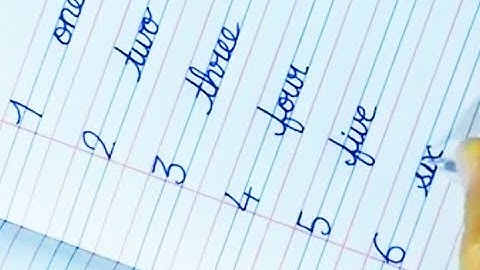 1 one
2 two
3 three
4 four
5 five
6 six